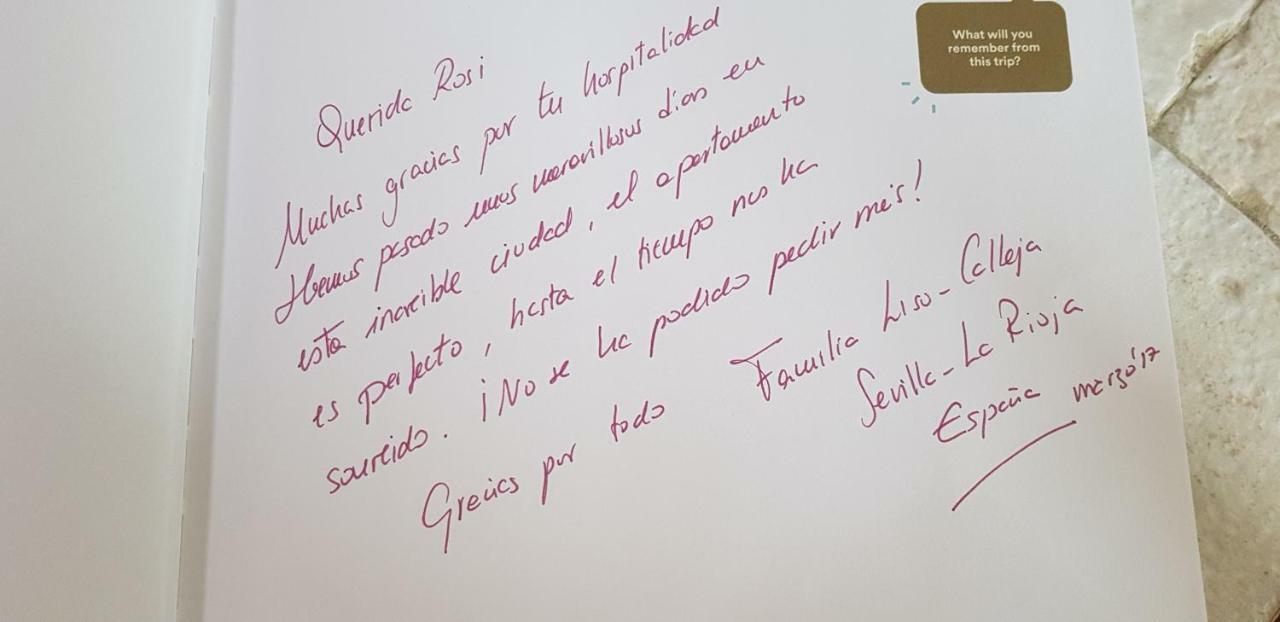 What will you
remember from
this trip?
Querida Rosi
Muchas gracias por tu hospitalidad
Hemos pasado unos maravillosos días en
esta increíble ciudad, el apartamento
es perfecto, hasta el tiempo nos ha
sonreido. ¡No se ha podido pedir más!
Gracias por todo
Familia Liso-Calleja
Sevilla-La Rioja
España marzo'17